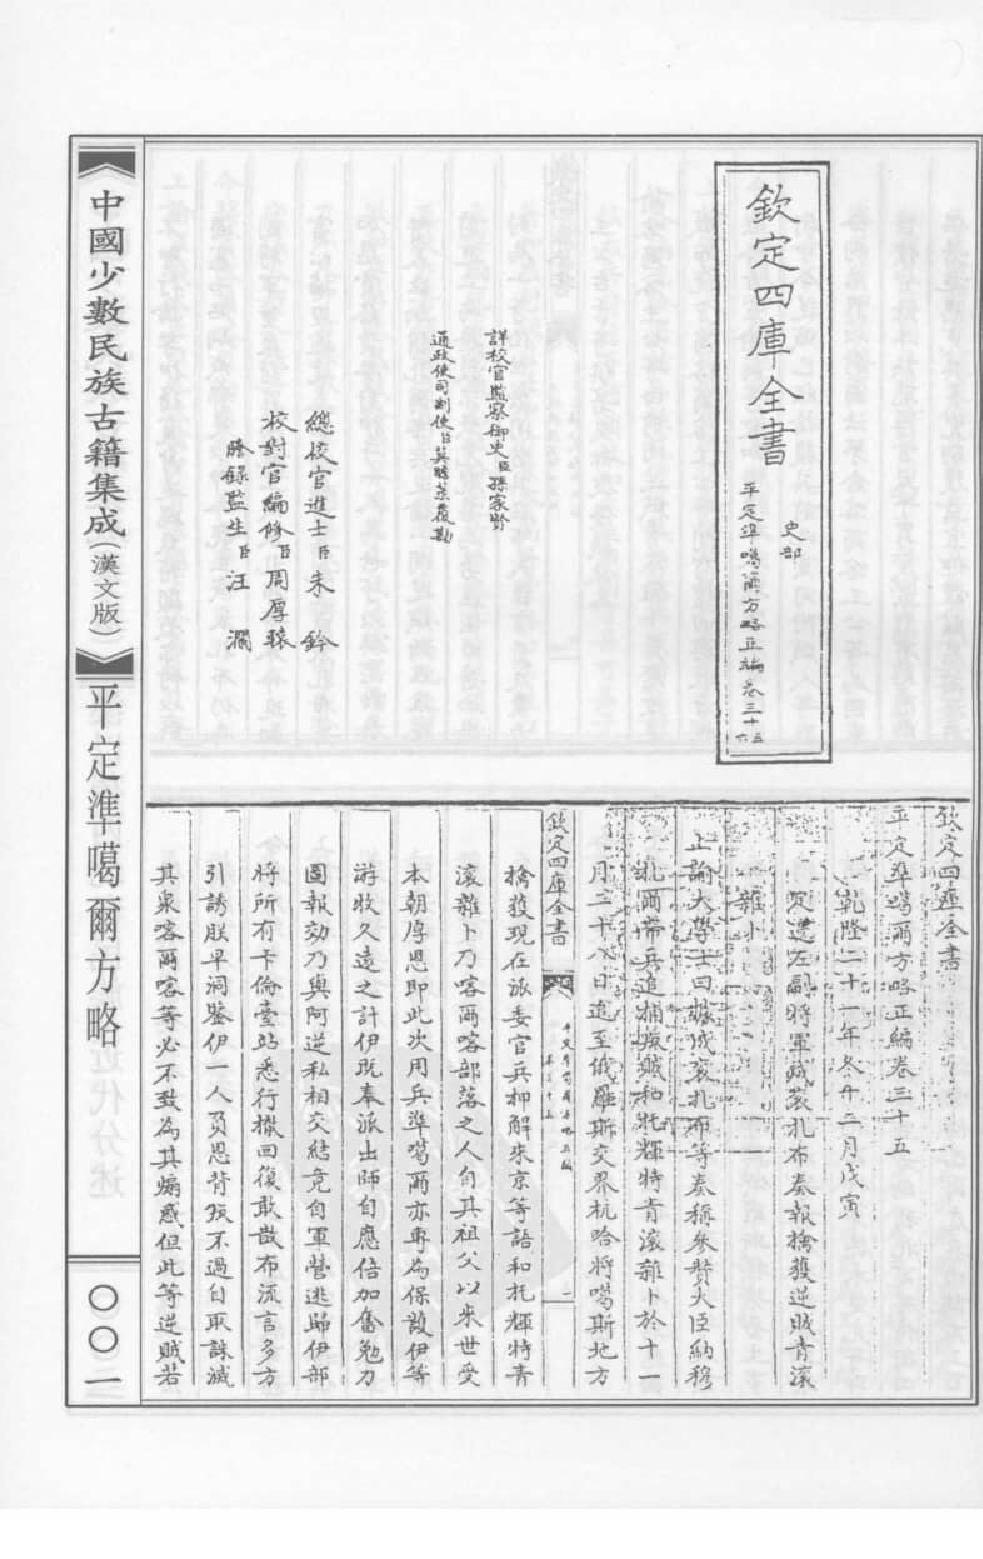 欽定四庫全書
史部
平定準噶爾方略正編卷三十五
六
詳校官監察御史臣孫家賢
通政使司副使臣莫瞻菉覆勘
總校官進士臣朱鈐
校對官編修臣周厚轅
謄錄監生臣汪瀾
欽定四庫全書
平定準噶爾方略正編卷三十五
乾隆二十一年冬十二月戊寅
定邊左副將軍成袞扎布奏報擒獲逆賊青滾
雜卜
上諭大學士曰據成袞扎布等奏稱參贊大臣納穆
扎爾帶兵追捕據獲和托輝特青滾雜卜於十一
月二十八日追至俄羅斯交界杭哈將噶斯地方
欽定四庫全書
平定準噶爾方略正編
卷三十五
一
擒獲現在派委官兵押解來京等語和托輝特青
滾雜卜乃喀爾喀部落之人自其祖父以來世受
本朝厚恩即此次用兵準噶爾亦專為保護伊等
游牧久遠之計伊既奉派出師自應倍加奮勉力
圖報効乃與阿逆私相交結竟自軍營逃歸伊部
將所有卡倫臺站悉行撤回復敢散布流言多方
引誘朕早洞鑒伊一人負恩背叛不過自取誅滅
其衆喀爾喀等必不致為其煽惑但此等逆賊若
中國少數民族古籍集成(漢文版)
平定準噶爾方略
〇〇一